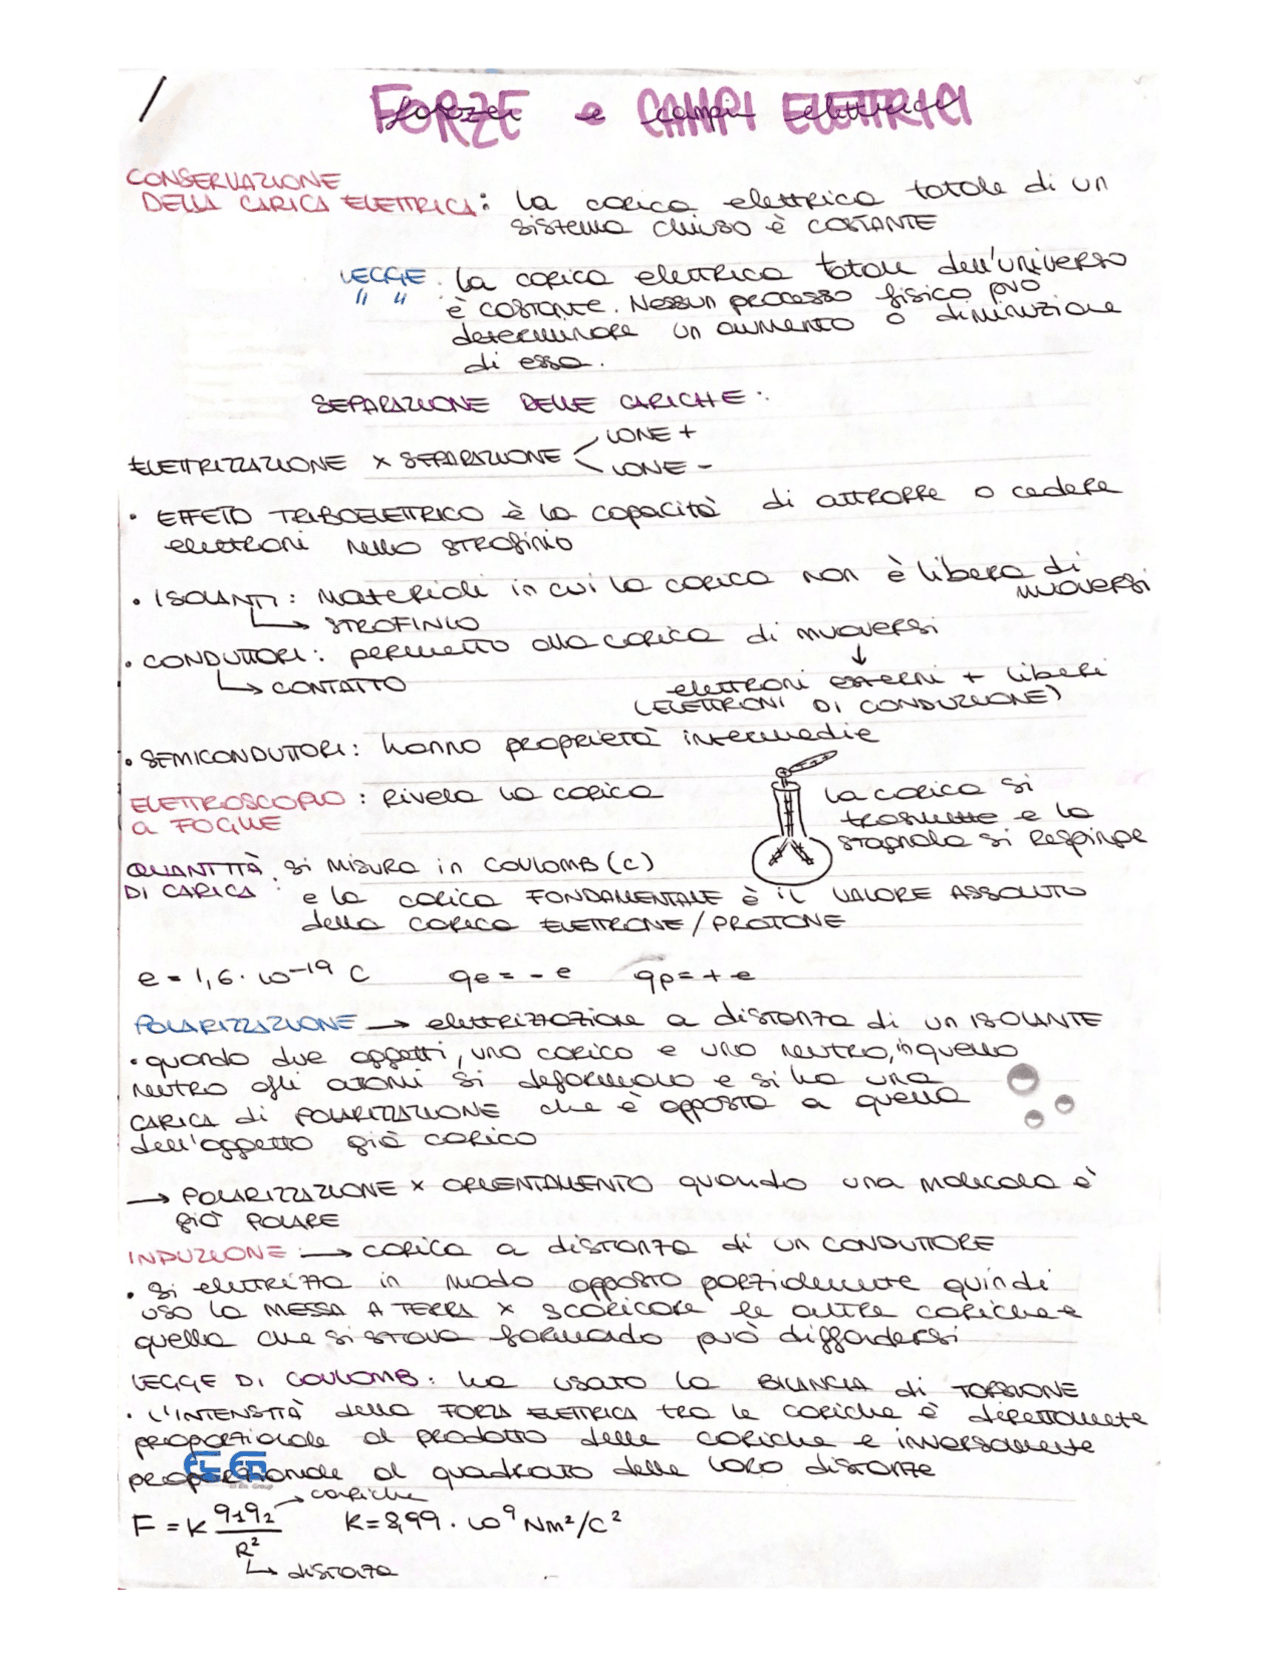 FORZE e CAMPI ELETTRICI
CONSERVAZIONE
DELLA CARICA ELETTRICA: la carica elettrica totale di un
sistema chiuso è COSTANTE
LEGGE : la carica elettrica totale dell'universo
" " è costante. Nessun processo fisico può
determinare un aumento o diminuzione
di essa.
SEPARAZIONE DELLE CARICHE:
ELETTRIZZAZIONE x SEPARAZIONE IONE +
IONE -
• EFFETO TRIBOELETTRICO è la capacità di attrarre o cedere
elettroni nello strofinio
• ISOLANTI: materiali in cui la carica non è libera di
muoversi
↳ STROFINIO
• CONDUTTORI: permetto alla carica di muoversi
↓
↳ CONTATTO elettroni esterni + liberi
(ELETTRONI DI CONDUZIONE)
• SEMICONDUTTORI: hanno proprietà intermedie
ELETTROSCOPIO : rivela la carica
A FOGLIE
la carica si
trasmette e la
stagnola si respinge
QUANTITÀ : si misura in COULOMB (C)
DI CARICA e la carica FONDAMENTALE è il VALORE ASSOLUTO
della carica ELETTRONE/PROTONE
e = 1,6 · 10⁻¹⁹ C qe = - e qp = + e
POLARIZZAZIONE → elettrizzazione a distanza di un ISOLANTE
• quando due oggetti, uno carico e uno neutro, in quello
neutro gli atomi si deformano e si ha una
CARICA di POLARIZZAZIONE che è opposta a quella
dell'oggetto già carico
→ POLARIZZAZIONE x ORIENTAMENTO quando una molecola è
già POLARE
INDUZIONE: → carica a distanza di un CONDUTTORE
• si elettrizza in modo opposto parzialmente quindi
uso la MESSA A TERRA x scaricare le altre cariche e
quella che si stava formando può diffondersi
LEGGE DI COULOMB: ha usato la BILANCIA di TORSIONE
• L'INTENSITÀ della FORZA ELETTRICA tra le cariche è direttamente
proporzionale al prodotto delle cariche e inversamente
proporzionale al quadrato delle loro distanze
→ cariche
F = K q₁q₂ / R² K = 8,99 · 10⁹ Nm²/C²
↳ distanza